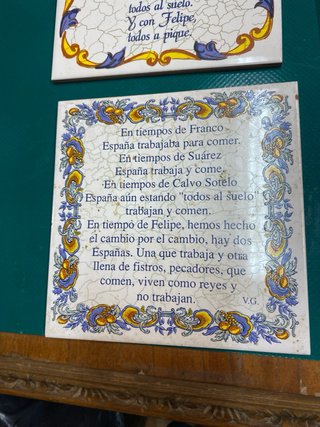 todos al suelo.
Y con Felipe,
todos a pique.
En tiempos de Franco
España trabajaba para comer.
En tiempos de Suárez
España trabaja y come.
En tiempos de Calvo Sotelo
España aún estando "todos al suelo"
trabajan y comen.
En tiempo de Felipe, hemos hecho
el cambio por el cambio, hay dos
Españas. Una que trabaja y otra
llena de fistros, pecadores, que
comen, viven como reyes y
no trabajan.
V.G.